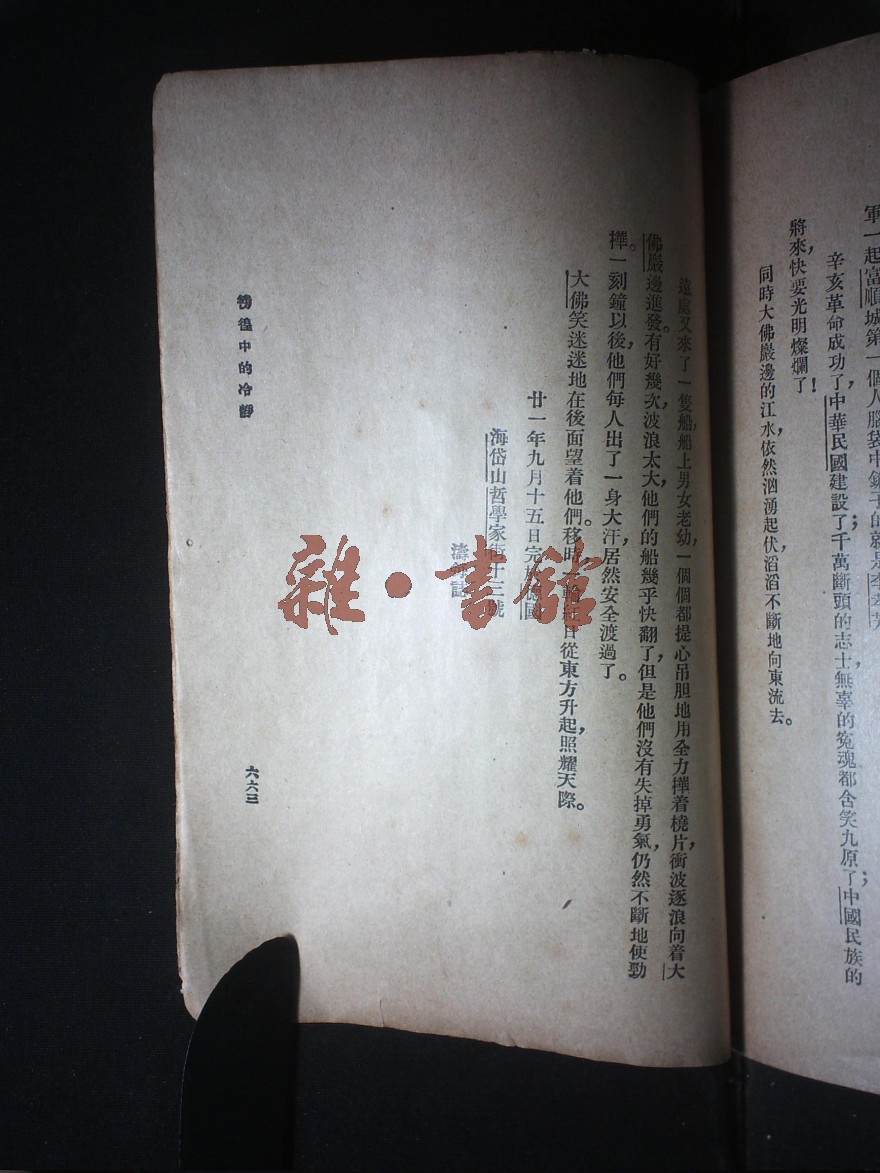 軍一起富順城第一個人腦袋中鏡子的就是李
辛亥革命成功了，中華民國建設了；千萬斷頭的志士，無辜的冤魂都含笑九原了；中國民族的
將來快要光明燦爛了！
同時大佛巖邊的江水，依然洶湧起伏，滔滔不斷地向東流去。
遠處又來了一隻船，船上男女老幼，一個個都提心吊胆地用全力撶着橈片，衝波逐浪，向着大
佛巖邊進發。有好幾次，波浪太大，他們的船幾乎快翻了，但是他們沒有失掉勇氣，仍然不斷地使勁
撶。一刻鐘以後，他們每人出了一身大汗，居然安全渡過了。
大佛笑迷迷地在後面望着他們。移時，一輪紅日從東方升起，照耀天際。
廿一年九月十五日完於德國
海岱山哲學家街十三號
濤誌
徬徨中的冷靜
六六三
雜·書館